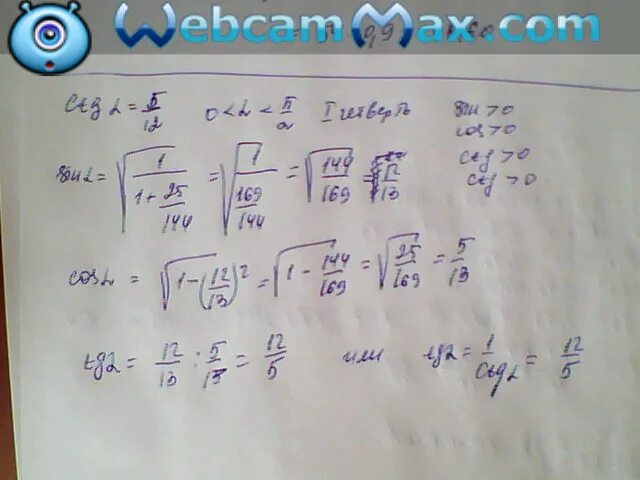 WebcamMax.com
ctg α = 5/12   0 < α < π/2   I четверть   sin > 0
cos > 0
ctg > 0
ctg > 0
sin α = √(1/(1 + 25/144)) = √(1/(169/144)) = √(144/169) = 12/13
cos α = √(1 − (12/13)²) = √(1 − 144/169) = √(25/169) = 5/13
tg α = 12/13 : 5/13 = 12/5   или   tg α = 1/ctg α = 12/5